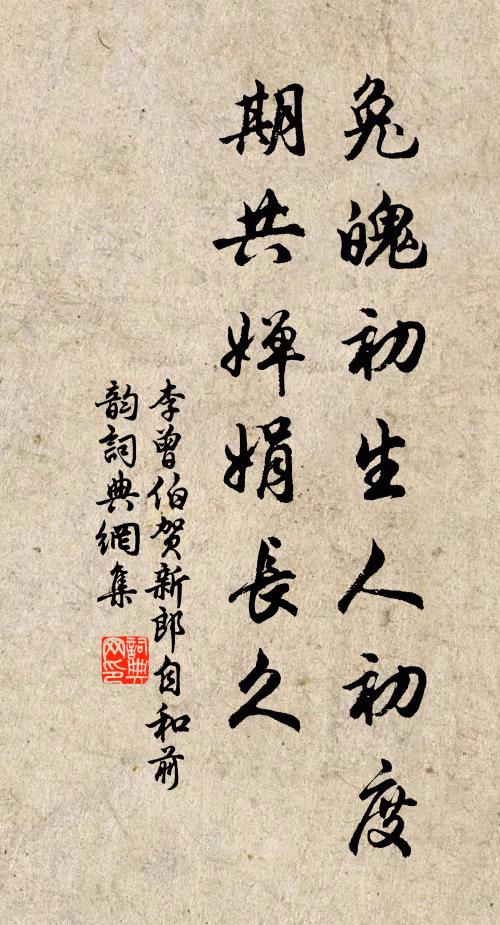 兔魄初生人初度
期共嬋娟長久
李曾伯賀新郎自和前
韵詞典網集
詞典網印